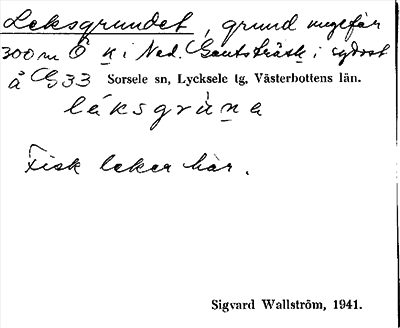 Leksgrundet, grund ungefär
300 m Ö k i Ned. Gautsträsk i sydost
å G 33 Sorsele sn, Lycksele tg, Västerbottens län.
lǻksgrùna
Fisk leker här.
Sigvard Wallström, 1941.